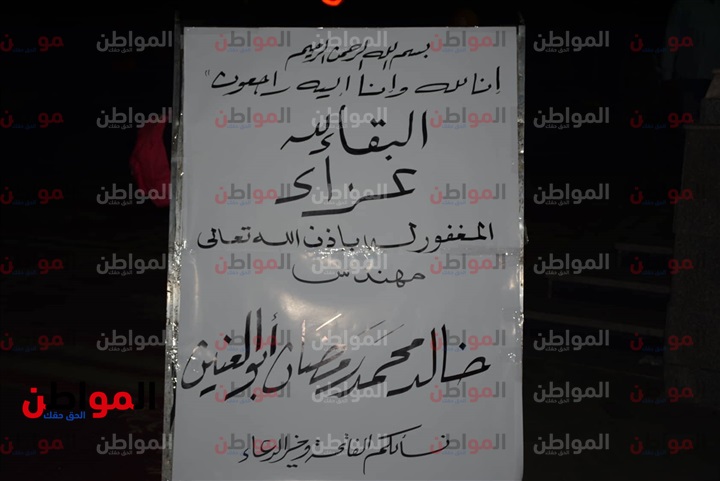 بسم الله الرحمن الرحيم
إنا لله وإنا إليه راجعون"
البقاء لله
عزاء
المغفور له باذن الله تعالى
مهندس
خالد محمد رمضان أبو العنين
نسألكم الفاتحة وخير الدعاء
المواطن
الحق حقك